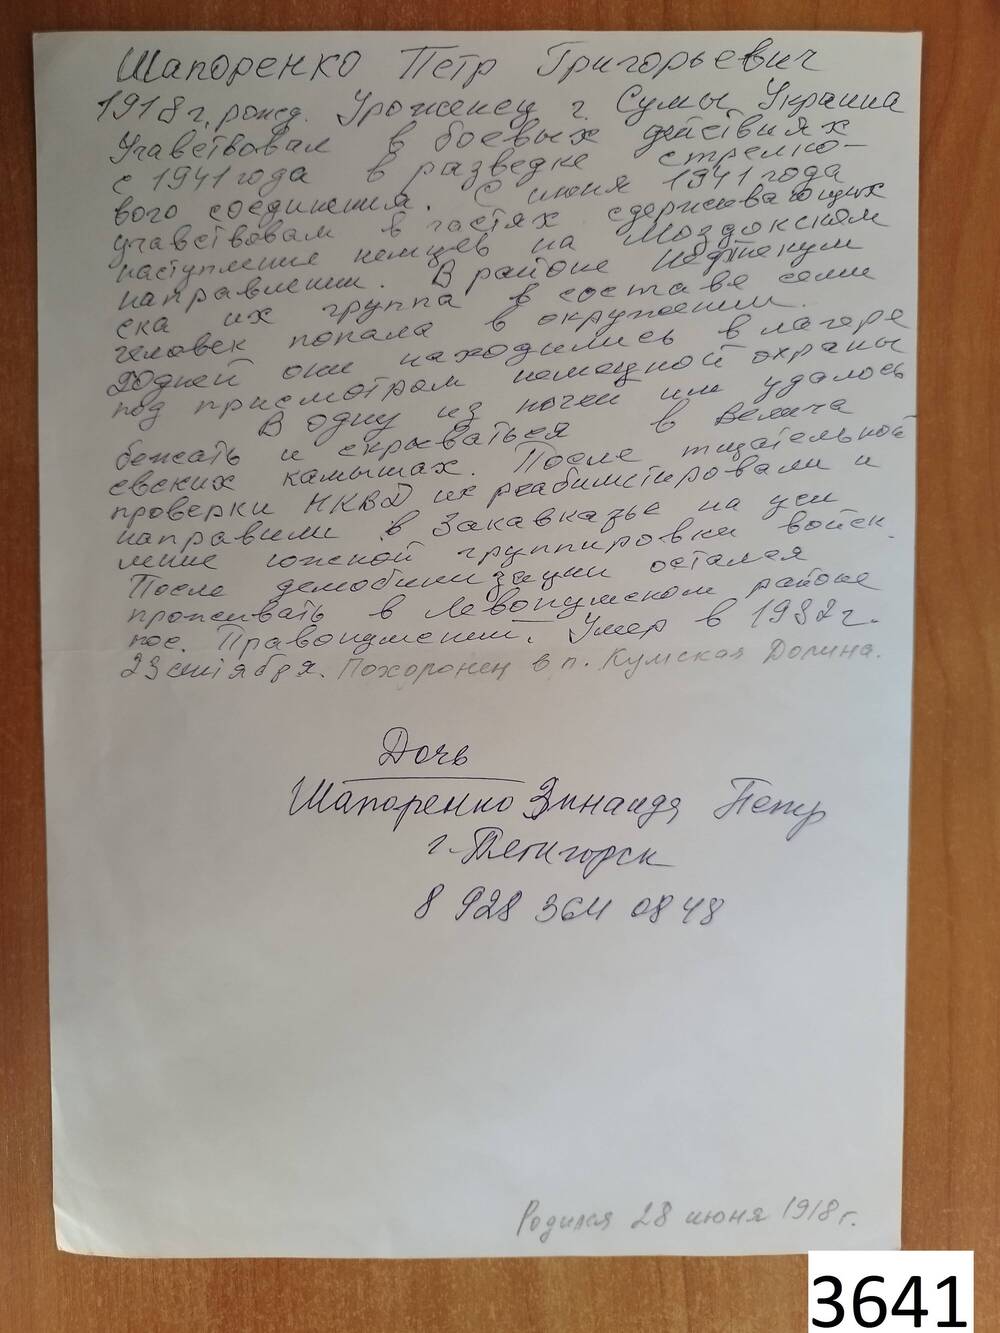 Шапоренко Пётр Григорьевич
1918 г. рожд. Уроженец г. Сумы Украина
Учавствовал в боевых действиях
с 1941 года в разведке стрелко-
вого соединения. С июня 1941 года
учавствовал в частях сдерживающих
наступление немцев на Моздокском
направлении. В районе Нефтекум
ска их группа в составе семи
человек попала в окружении.
20 дней они находились в лагере
под присмотром немецкой охраны
В одну из ночей им удалось
бежать и скрываться в Велича
евских камышах. После тщательной
проверки НКВД их реабилитировали и
направили в Закавказье на уси
ление южной группировки войск.
После демобилизации остался
проживать в Левокумском районе
пос. Правокумский. Умер в 1982 г.
23 сентября. Похоронен в п. Кумская Долина.
Дочь
Шапоренко Зинаида Петр
г. Пятигорск
8 928 364 08 48
Родился 28 июня 1918 г.
3641